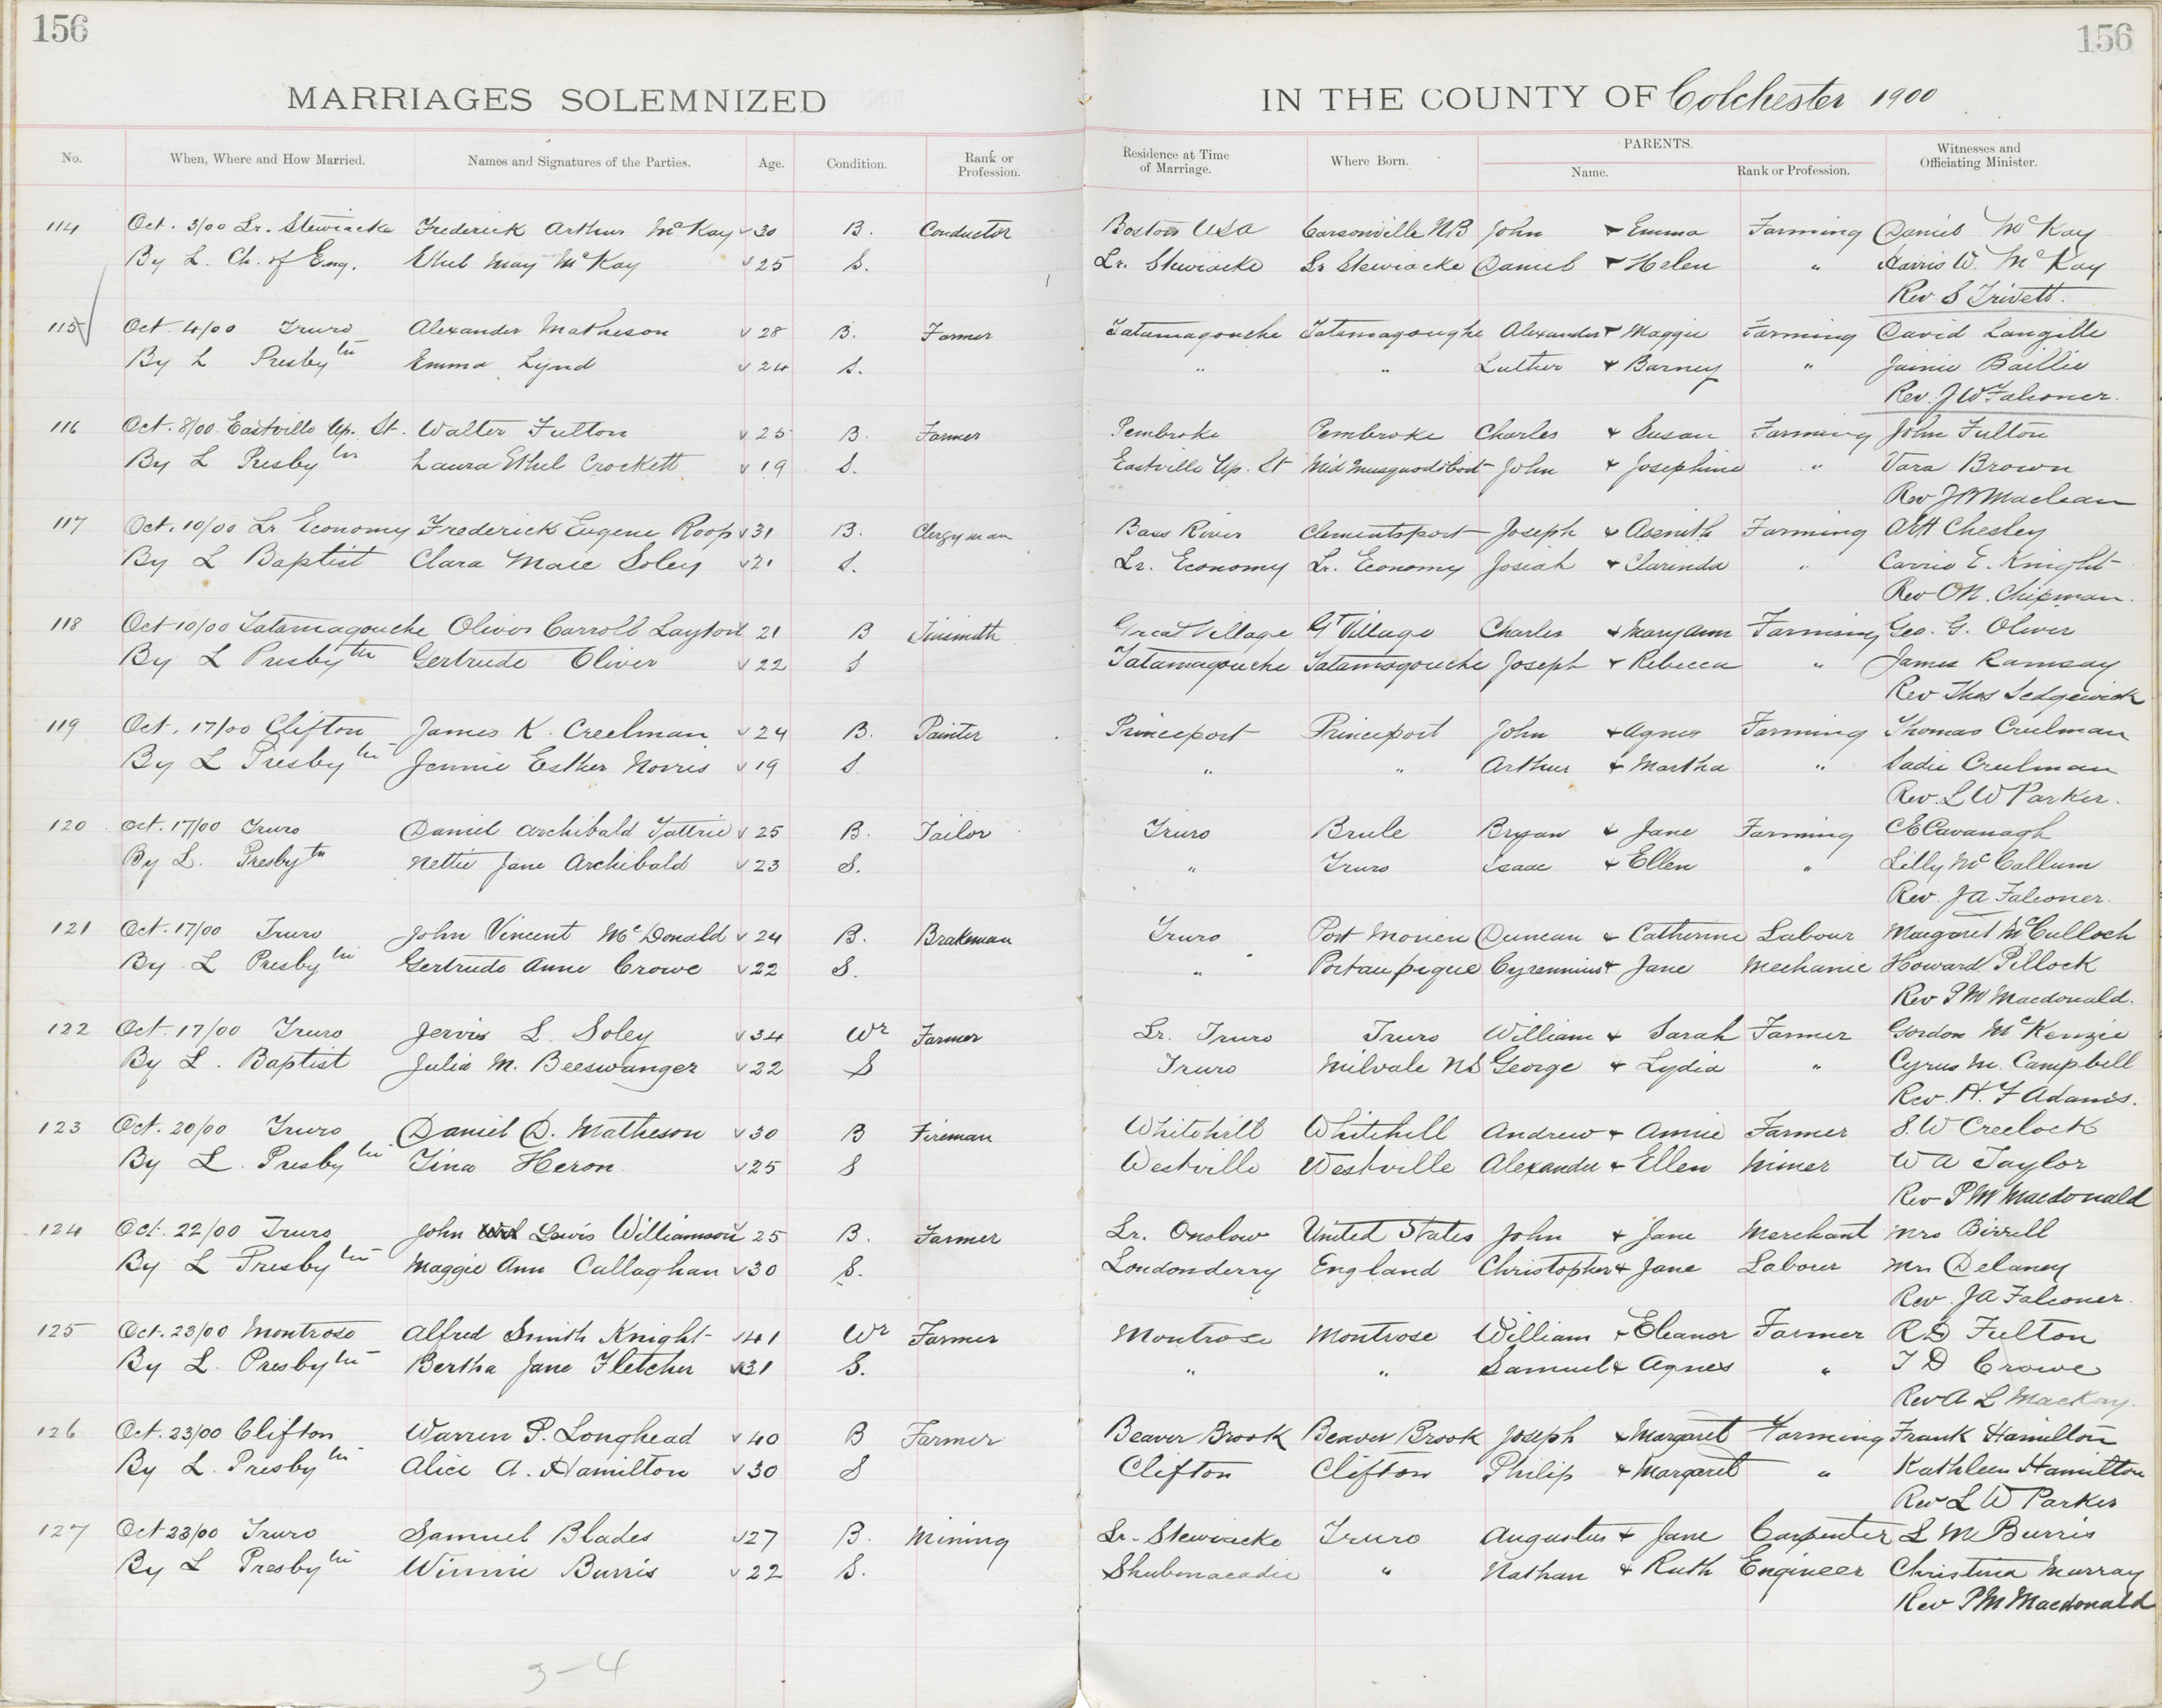 156
156
MARRIAGES SOLEMNIZED IN THE COUNTY OF Colchester 1900
No. When, Where and How Married. Names and Signatures of the Parties. Age. Condition. Rank or Profession. Residence at Time of Marriage. Where Born. PARENTS. Name. Rank or Profession. Witnesses and Officiating Minister.
114 Oct. 3/00 Lr. Stewiacke Frederick Arthur McKay 30 B. Conductor Boston USA Carsonville NB John & Emma Farming Daniel McKay
By L. Ch. of Eng. Ethel May McKay 25 S. Lr. Stewiacke Lr Stewiacke Daniel & Helen " Harris W. McKay
Rev. S Trivett.
115 Oct. 4/00 Truro Alexander Matheson 28 B. Farmer Tatamagouche Tatamagoughe Alexander & Maggie Farming David Langille
By L Presbytn Emma Lynd 24 S. " " Luther & Barney " Jainie Baillie
Rev. J W Falconer.
116 Oct. 8/00 Eastville Up. St. Walter Fulton 25 B. Farmer Pembroke Pembroke Charles & Susan Farming John Fulton
By L Presbytn Laura Ethel Crockett 19 S. Eastville Up. St Mid Musquodoboit John & Josephine " Vara Brown
Rev J B Maclean
117 Oct. 10/00 Lr Economy Frederick Eugene Roop 31 B. Clergyman Bass River Clementsport Joseph & Asenith Farming Chesley
By L Baptist Clara Maie Soley 21 S. Lr. Economy Lr. Economy Josiah & Clarinda " Carrie E. Knight
Rev O N. Chipman.
118 Oct 10/00 Tatamagouche Oliver Carroll Layton 21 B Tinsmith Great Village Gt Village Charles & Mary Ann Farming Geo. G. Oliver
By L Presbytn Gertrude Oliver 22 S Tatamagouche Tatamagouche Joseph & Rebecca " James Ramsay
Rev Thos Sedgewick
119 Oct. 17/00 Clifton James K. Creelman 24 B. Painter Princeport Princeport John & Agnes Farming Thomas Creelman
By L Presbytn Jennie Esther Norris 19 S. " " Arthur & Martha " Sadie Creelman
Rev. L W Parker.
120 Oct. 17/00 Truro Daniel Archibald Tattrie 25 B. Tailor Truro Brule Bryan & Jane Farming C E Cavanagh
By L. Presbytn Nettie Jane Archibald 23 S. " Truro Isaac & Ellen " Lilly McCallum
Rev. J A Falconer.
121 Oct. 17/00 Truro John Vincent McDonald 24 B. Brakeman Truro Port Morien Duncan & Catherine Labour Margaret McCulloch
By L Presbytn Gertrude Anne Crowe 22 S. " Portaupique Cyrennius & Jane Mechanic Howard Pillock
Rev P M Macdonald.
122 Oct. 17/00 Truro Jervis L. Soley 34 Wr Farmer Lr. Truro Truro William & Sarah Farmer Gordon McKenzie
By L. Baptist Julia M. Beeswanger 22 S Truro Milvale NS George & Lydia " Cyrus M. Campbell
Rev. H. F Adams.
123 Oct. 20/00 Truro Daniel D. Matheson 30 B Fireman Whitehill Whitehill Andrew & Annie Farmer S. W Creelock
By L. Presbytn Tina Heron 25 S Westville Westville Alexander & Ellen Miner W A Taylor
Rev P M Macdonald
124 Oct. 22/00 Truro John Lewis Williamson 25 B. Farmer Lr. Onslow United States John & Jane Merchant Mrs Birrell
By L Presbytn Maggie Ann Callaghan 30 S. Londonderry England Christopher & Jane Laborer Mrs Delaney
Rev. J A Falconer.
125 Oct. 23/00 Montrose Alfred Smith Knight 41 Wr Farmer Montrose Montrose William & Eleanor Farmer R D Fulton
By L. Presbytn Bertha Jane Fletcher 31 S. " " Samuel & Agnes " T D Crowe
Rev A L MacKay.
126 Oct. 23/00 Clifton Warren P. Longhead 40 B Farmer Beaver Brook Beaver Brook Joseph & Margaret Farming Frank Hamilton
By L. Presbytn Alice A. Hamilton 30 S Clifton Clifton Philip & Margaret " Kathleen Hamilton
Rev L W Parker
127 Oct 23/00 Truro Samuel Blades 27 B. Mining Lr. Stewiacke Truro Augustus & Jane Carpenter L M Burris
By L Presbytn Winnie Burris 22 S. Shubenacadie " Nathan & Ruth Engineer Christina Murray
Rev P M Macdonald
3-4